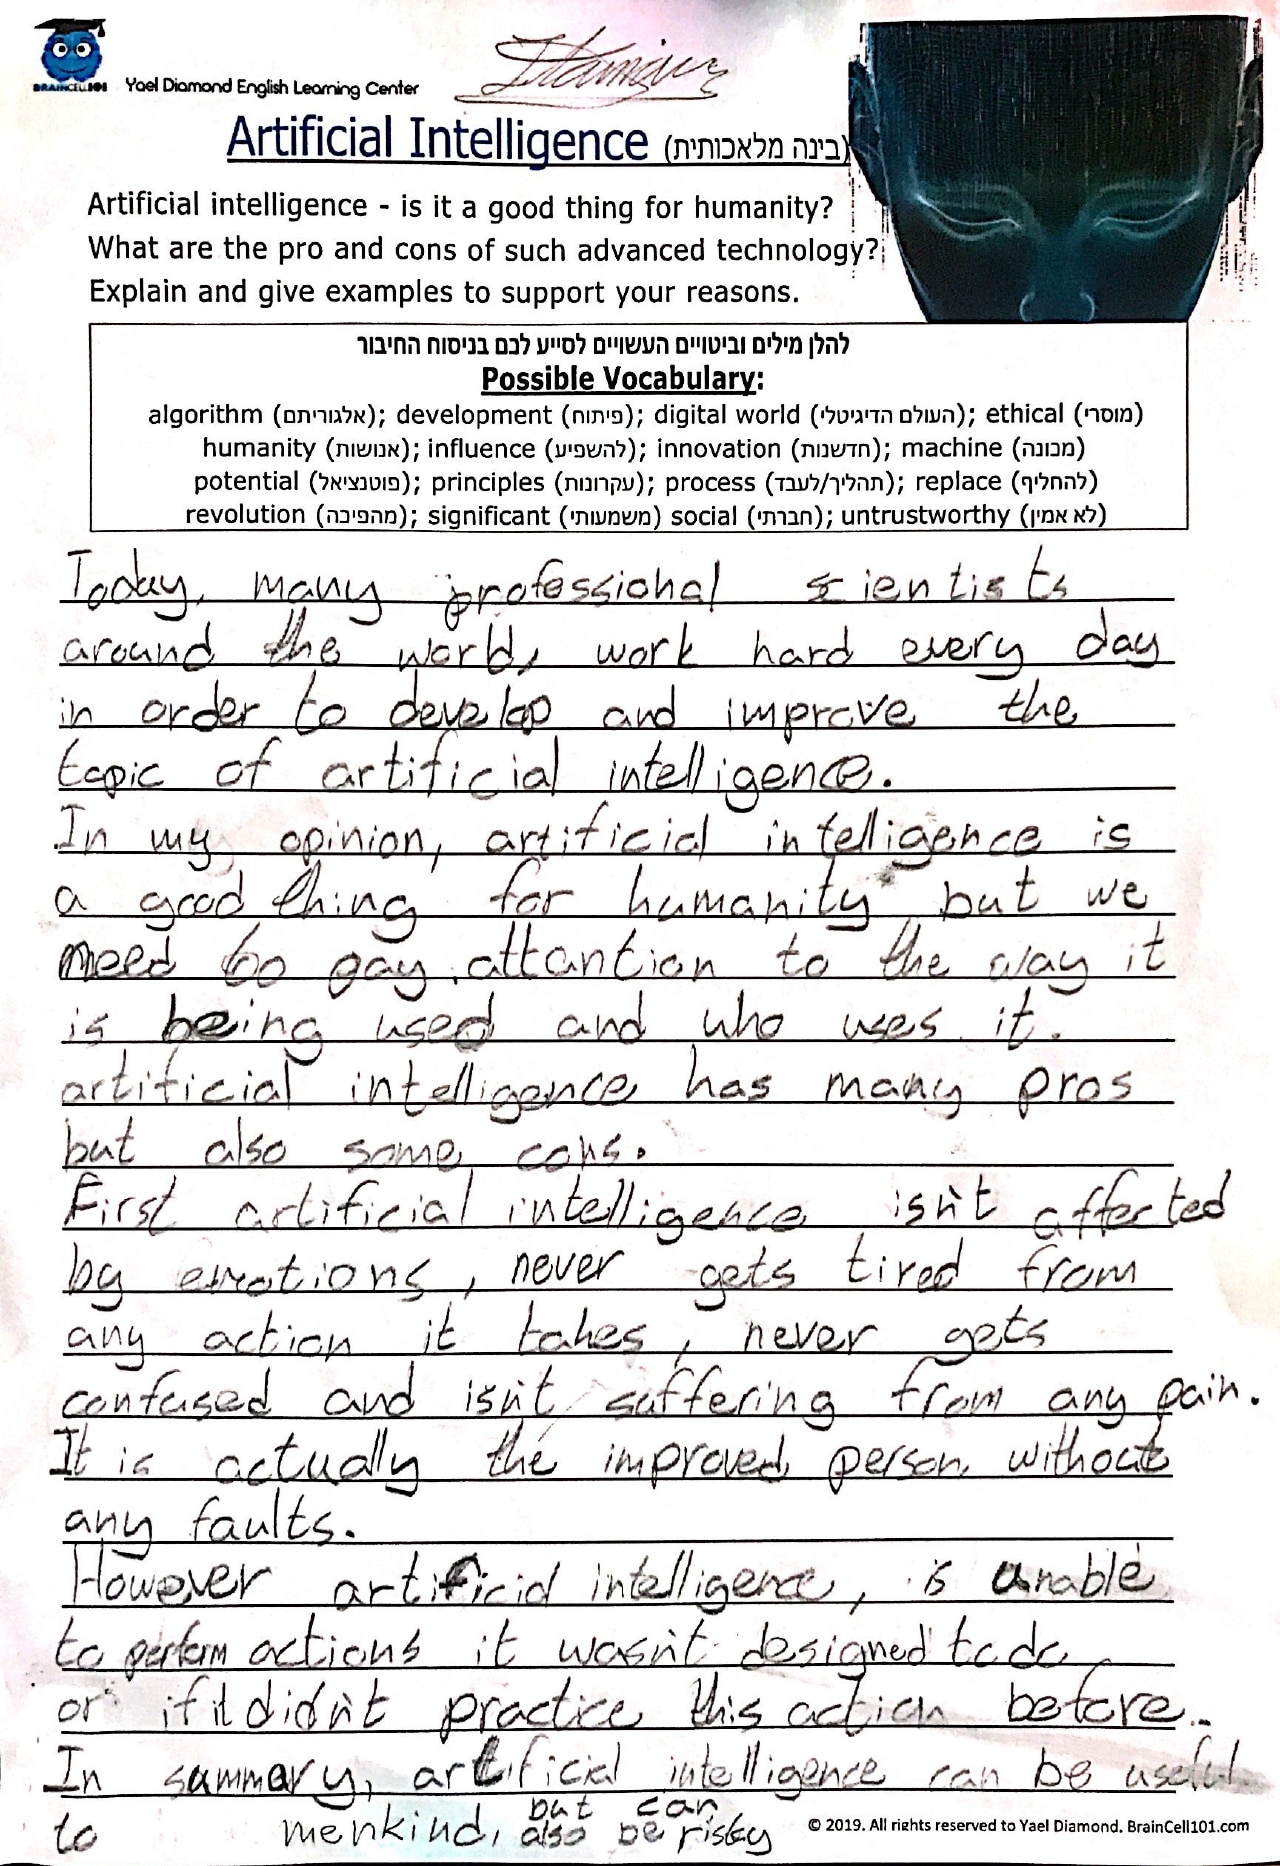 BRAINCELL101
Yael Diamond English Learning Center
Artificial Intelligence (בינה מלאכותית)
Artificial intelligence - is it a good thing for humanity?
What are the pro and cons of such advanced technology?
Explain and give examples to support your reasons.
להלן מילים וביטויים העשויים לסייע לכם בניסוח החיבור
Possible Vocabulary:
algorithm (אלגוריתם); development (פיתוח); digital world (העולם הדיגיטלי); ethical (מוסרי)
humanity (אנושות); influence (להשפיע); innovation (חדשנות); machine (מכונה)
potential (פוטנציאל); principles (עקרונות); process (תהליך/לעבד); replace (להחליף)
revolution (מהפיכה); significant (משמעותי) social (חברתי); untrustworthy (לא אמין)
Today, many professional scientists
around the world, work hard every day
in order to develop and improve the
topic of artificial intelligence.
In my opinion, artificial intelligence is
a good thing for humanity but we
need to pay attantion to the way it
is being used and who uses it.
artificial intelligence has many pros
but also some cons.
First artificial intelligence isn't affected
by emotions, never gets tired from
any action it takes, never gets
confused and isn't suffering from any pain.
It is actually the improved person without
any faults.
However artificial intelligence, is unable
to perform actions it wasn't designed to do
or if it didn't practice this action before.
In summary, artificial intelligence can be useful
to menkind, but can also be risky
© 2019. All rights reserved to Yael Diamond. BrainCell101.com